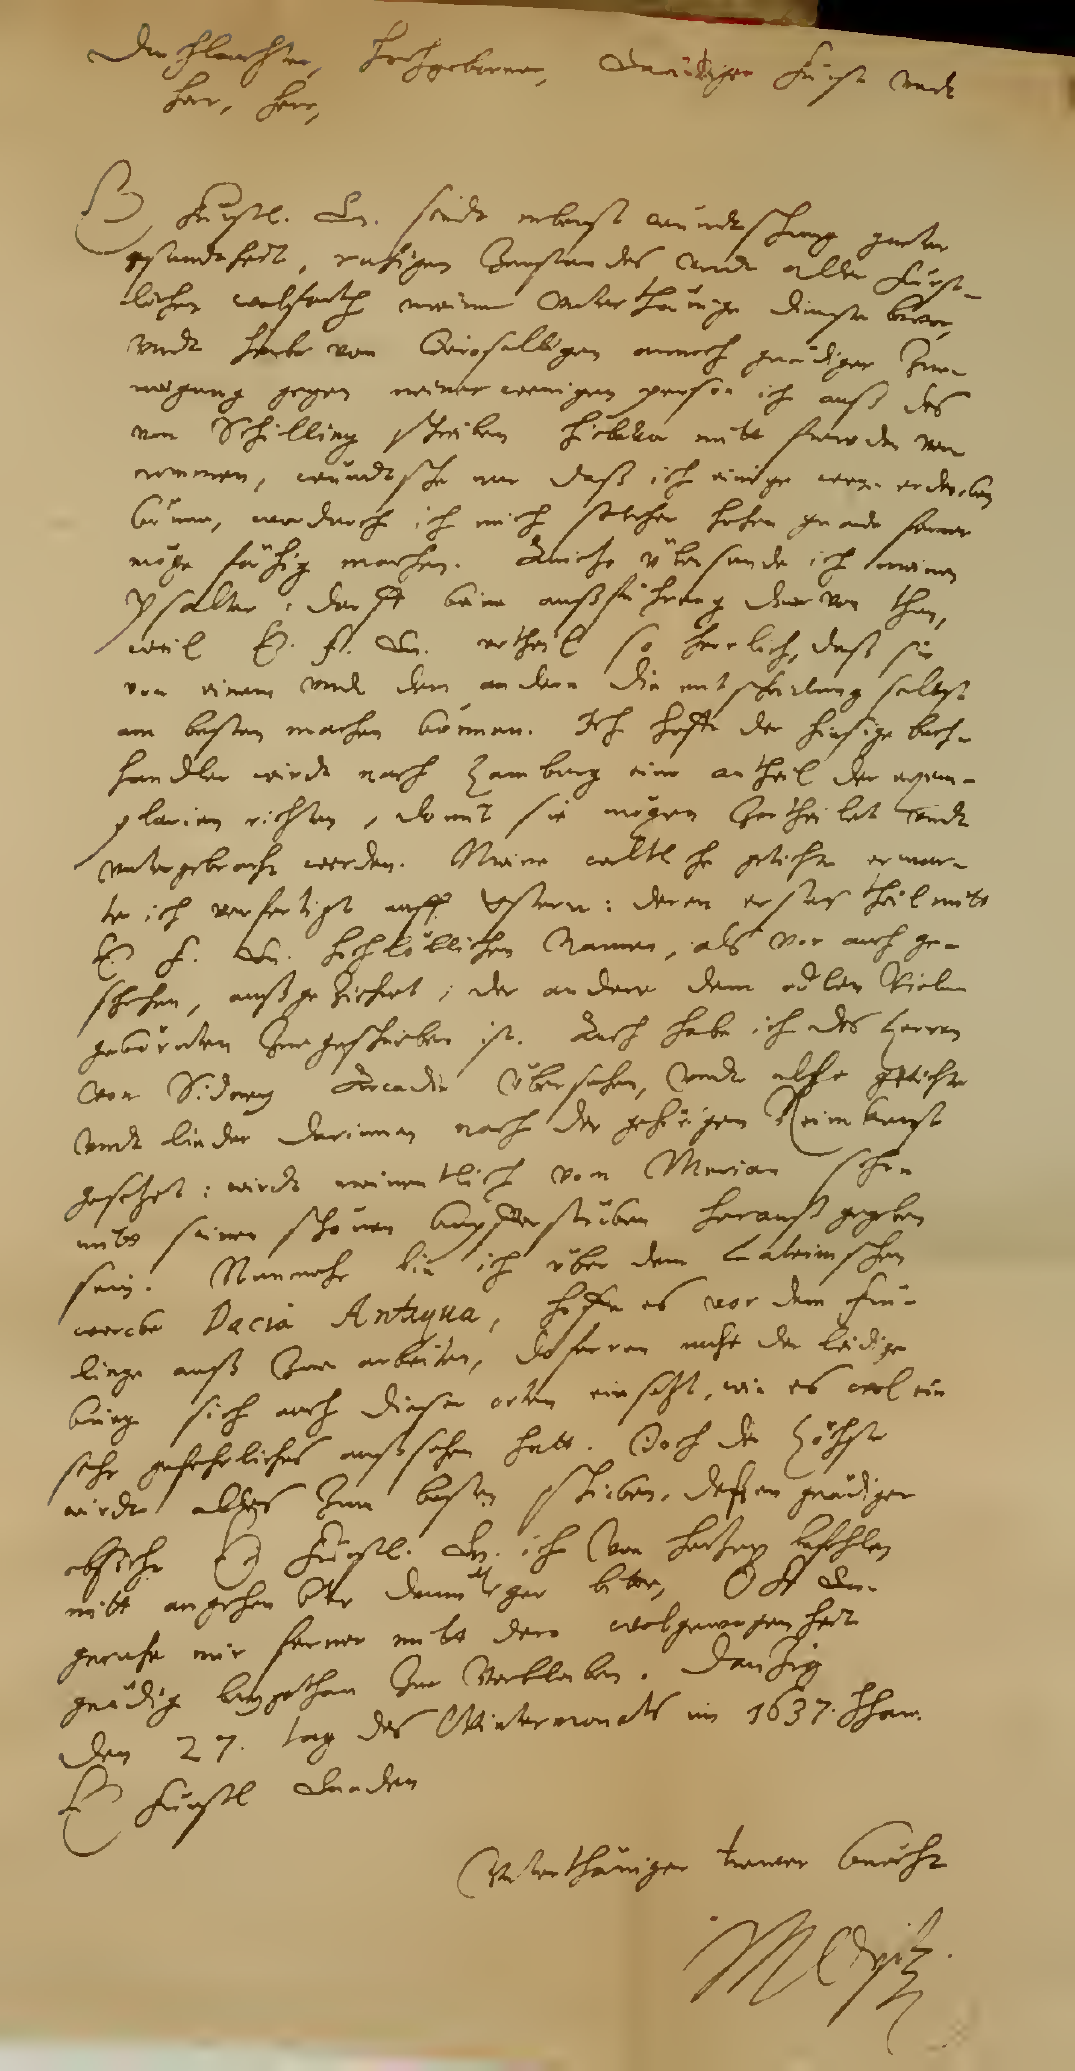 Durchlauchter, Hochgeborner, Gnädiger Fürst vndt
Herr, Herr,
E Fürstl. Gn. sindt nebenst wündtschung guter
gesundtheit, ruhigen Zuestandes vndt aller Fürst-
lichen wolfarth meine Vnterthänige dienste bevor,
vndt habe von Deroselbigen annoch gnädiger Zue-
neigung gegen meiner wenigen person ich auß des
von Schilling schreiben hiebevor mitt frewden ver
nommen, wündtsche nur daß ich einige wege erdencken
könne, wordurch ich mich solcher hohen gnade ferner
möge fähig machen. Anietzo übersende ich meinen
Psalter: darff keine außführung darvon thun,
weil E. F. Gn. vrtheil so herrlich, daß sie
von einem vndt dem andern die entscheidung selbst
am besten machen können. Ich hoffe der hiesige buch-
handler wirdt nach Hamburg einen antheil der exem-
plarien richten, damit sie mögen Zertheilet vndt
vntergebracht werden. Meine weltliche getichte erwar-
te ich verfertigt auff Ostern: deren erster theil mitt
E F. Gn. hochlöblichen Namen, als vor auch ge-
schehen, außgeziehret; der andere dem edlen Vielge-
gekörnten Zuegeschrieben ist. Auch habe ich des Herren
von Sidney Arcadia übersehen, vndt alle getichte
vndt lieder darinnen nach der gehörigen Reimkunst
gesetzet: wirdt meinentlich vom Merian schon
mitt seinen schönen kupfferstücken herauß gegeben
sein. Nunmehr bin ich über dem Lateinischen
wercke Dacia Antiqua, hoffe es vor dem Früe-
linge auß Zue arbeiten, dafern nicht der leidige
krieg sich auch dieser orten einsetzt, wie es wol ein
sehr gefehrliches außsehen hatt. Doch der Höchste
wirdt alles Zum besten schicken, dessen gnädiger
obsicht E Fürstl. Gn. ich von hertzen befehlen
mitt angehenckter demütiger bitte, E F Gn.
geruhe mir ferner mitt dero wolgewogenheit
gnädig beygethan Zue verbleiben. Dantzig
den 27. tag des Wintermonats im 1637. Jhar.
E Fürstl Gnaden
Vnterthäniger trewer knecht
MOpitz.